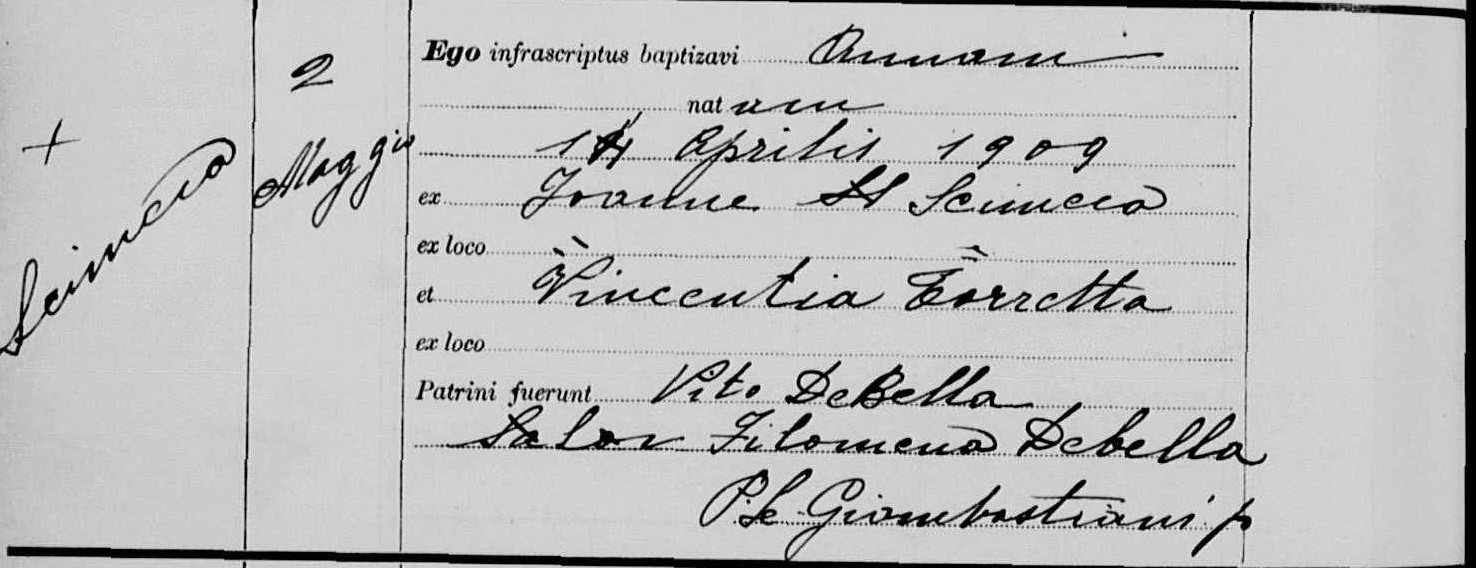 +
Scimeca
2
Maggio
Ego infrascriptus baptizavi Annam
natam
14 Aprilis 1909
ex Joanne Scimeca
ex loco
et Vincentia Torretta
ex loco
Patrini fuerunt Vito DeBella
Filomena Debella
Giambastiani p